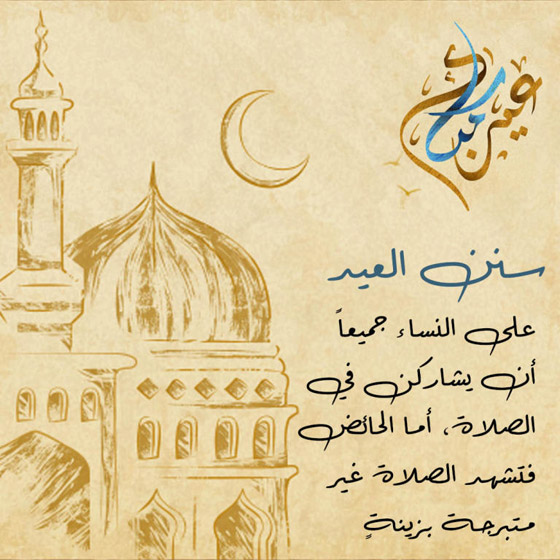 عيد مبارك
سنن العيد
على النساء جميعاً
أن يشاركن في
الصلاة، أما الحائض
فتشهد الصلاة غير
متبرجة بزينةٍ